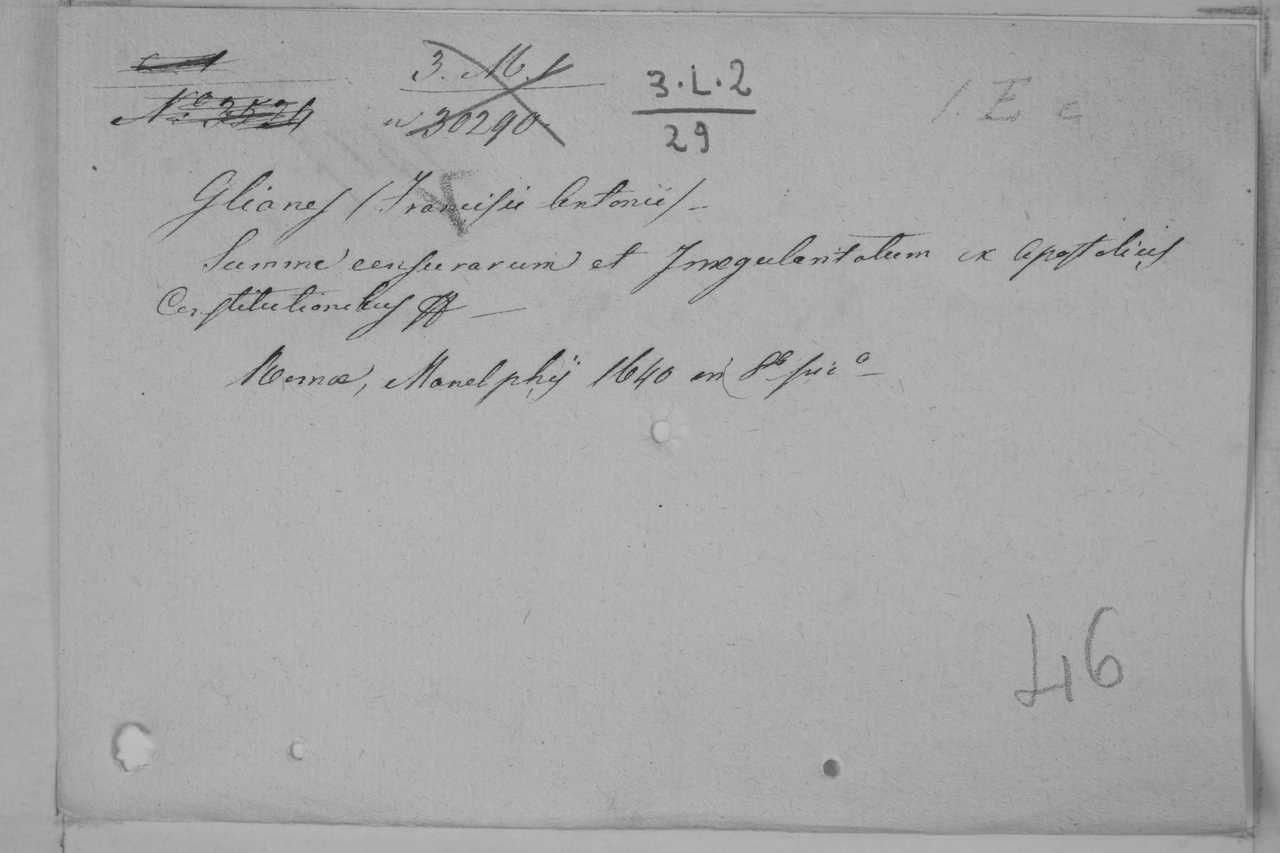 3. M. 1
3.L.2
No 3524
n 30290
29
1 E c
Glianes (Francisii Antonii) —
Summa censurarum et Irregularitatum ex Apostolicis
Constitutionibus &&
Romæ, Manelphij 1640 en 8º pic º
46